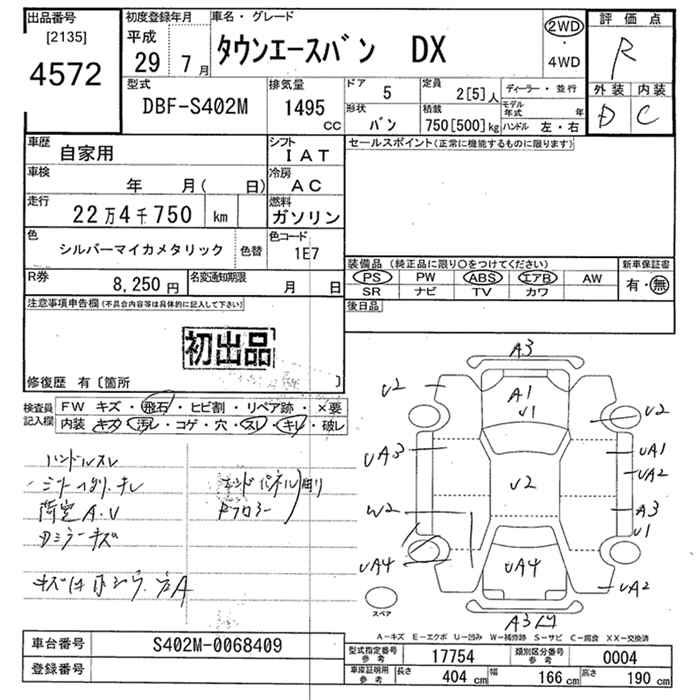 出品番号
[2135]
4572
初度登録年月
平成
29 7月
車名・グレード
タウンエースバン DX
2WD
・
4WD
評価点
R
外装 内装
D C
型式
DBF-S402M
排気量
1495
cc
ドア
5
定員
2[5]人
ディーラー・並行
形状
バン
積載
750[500]kg
モデル年式 年
ハンドル 左・右
車歴
自家用
シフト
IAT
車検
年 月( 日)
冷房
AC
走行
22万4千750 km
燃料
ガソリン
色
シルバーマイカメタリック
色替
色コード
1E7
R券
8,250円
名変通知期限
月 日
セールスポイント(正常に機能するものに限ります)
装備品 (純正品に限り○をつけてください)
PS PW ABS エアB AW
SR ナビ TV カワ
新車保証書
有・無
後日品
注意事項申告欄(不具合内容等は具体的に記入して下さい)
初出品
修復歴 有〔箇所 〕
検査員
記入欄
FW キズ・飛石・ヒビ割・リペア跡・×要
内装 キズ・汚レ・コゲ・穴・スレ・キレ・破レ
ハンドルスレ
シート キレ
荷室A.U
キズ
キズは A
A3
U2
A1
U1
U2
UA3
UA1
UA2
U2
W2
A3
U1
UA4
UA4
UA2
A3
スペア
A-キズ E-エクボ U-凹み W-補修跡 S-サビ C-腐食 XX-交換済
車台番号
S402M-0068409
登録番号
型式指定番号
参考
17754
類別区分番号
参考
0004
車庫証明用
参考
長さ
404 cm
幅
166 cm
高さ
190 cm